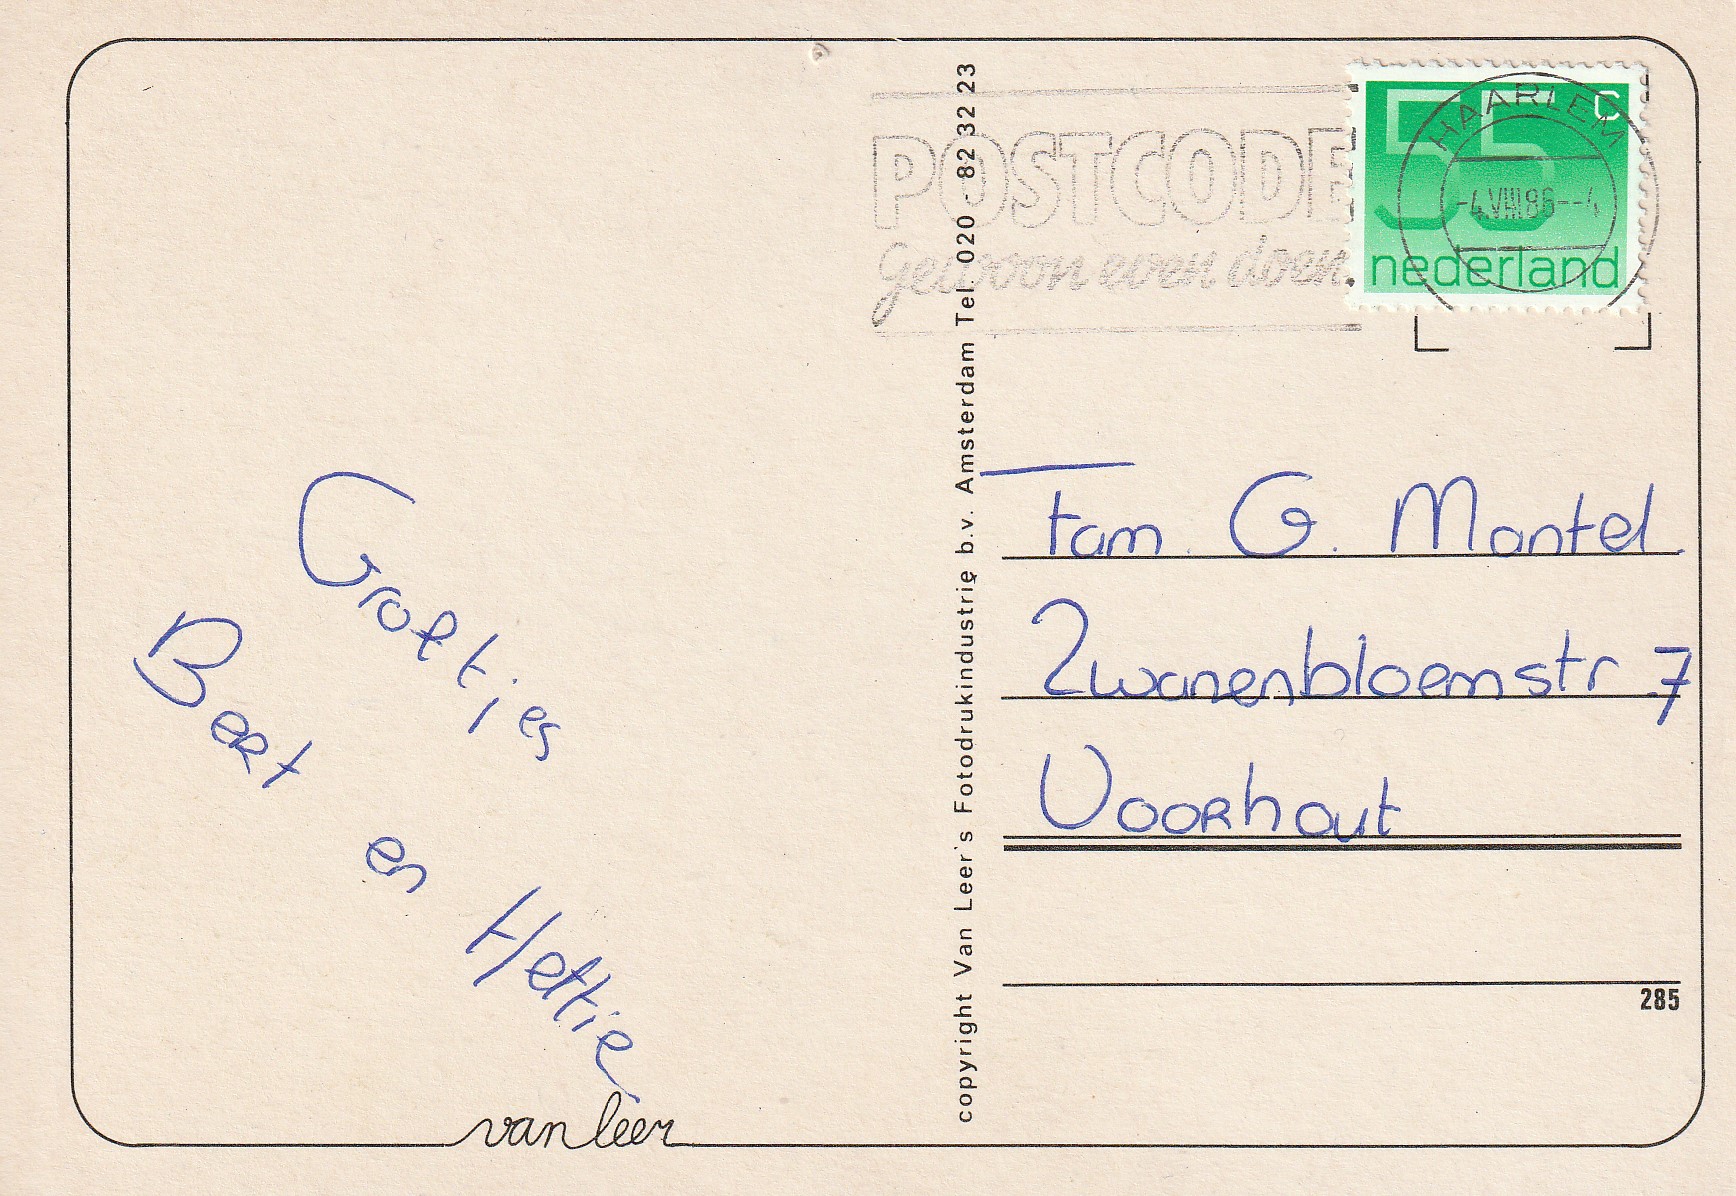 Groetjes
Bert en Hettie
van leer
copyright Van Leer's Fotodrukindustrie b.v. Amsterdam Tel. 020 - 82 32 23
POSTCODE
gewoon even doen
55 c
nederland
HAARLEM
-4.VIII.86--4
Fam. G. Mantel.
Zwanenbloemstr. 7
Voorhout
285